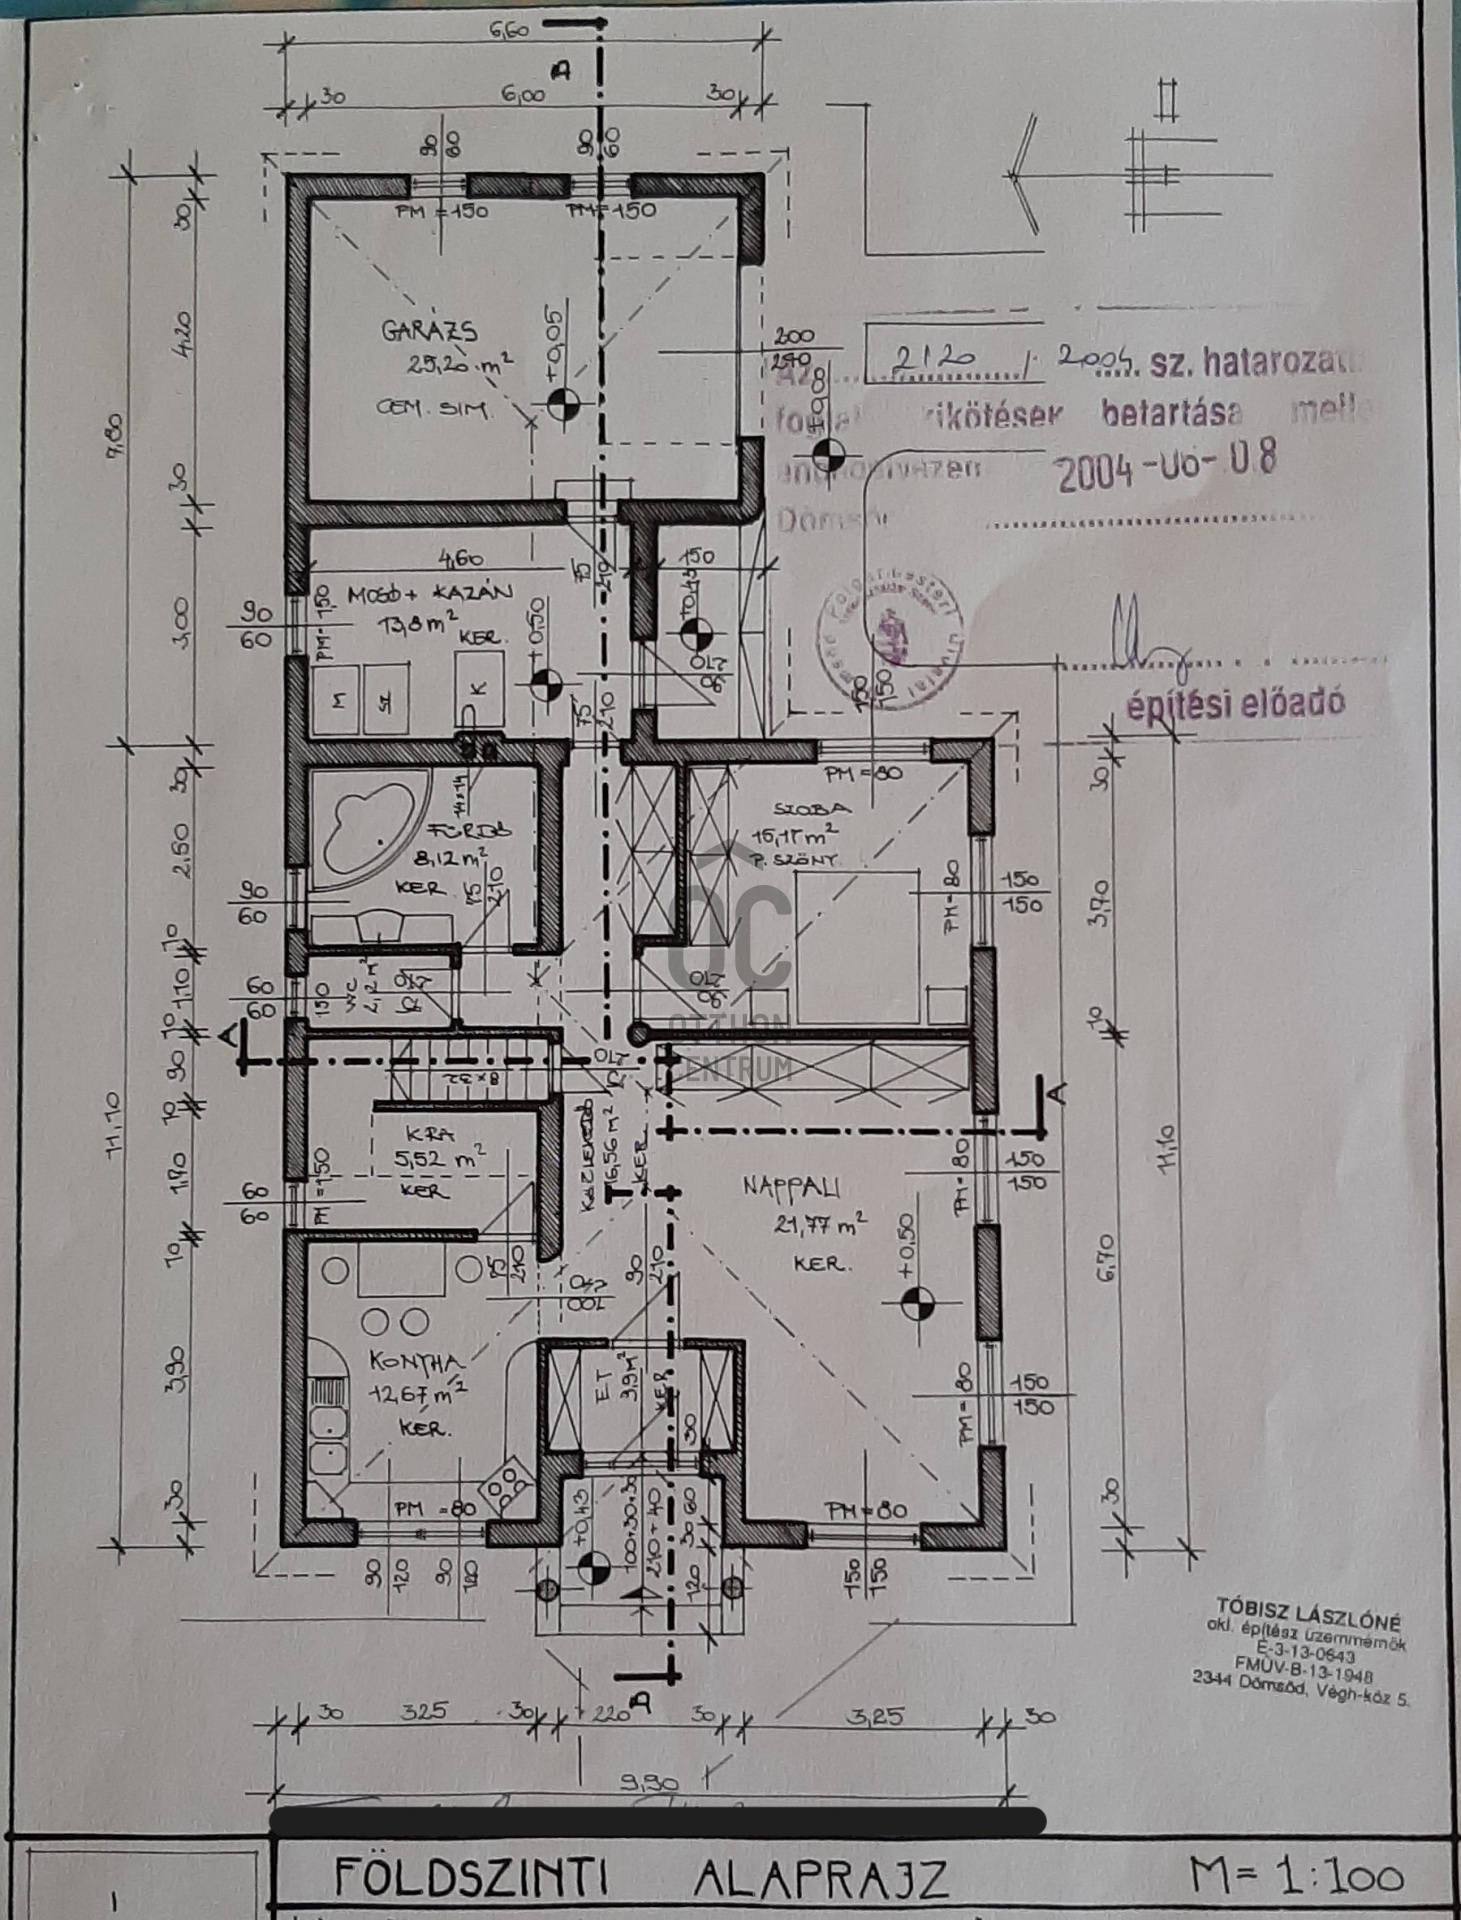 6,60
B
30 6,00 30
90 60 90 60
PM = 150 PM = 150
30
GARÁZS
25,20 m²
CEM. SIM.
+0,05
4,20
200
240
2120 / 2004. sz. határozat
kikötések betartása mell
2004-06-08
Dömsöd
7,80
30
4,60 150
75
210
MOSÓ + KAZÁN
13,8 m²
KER.
+0,50
+0,43
90
60
PM = 150
3,00
M SZ K
75
210
építési előadó
150
150
30
PM = 80
14x14
SZOBA
15,17 m²
P. SZŐNY.
FÜRDŐ
8,12 m²
KER
75
210
2,60
90
60
PM = 80
150
150
3,70
30
OC
OTTHON
CENTRUM
10
60
60
150
WC
1,10
10
10
A
8x32
90
10
KÖZLEKEDŐ
16,56 m²
KER.
A
KRA
5,52 m²
KER
60
60
PM = 150
1,70
10
75
210
NAPPALI
21,77 m²
KER.
+0,50
PM = 80
150
150
11,10
11,10
6,70
90
210
KONYHA
12,67 m²
KER.
3,90
E.T
3,9 m²
KER
30
PM = 80
150
150
30
PM = 80
PM = 80
30
90 120 90 120
+0,43
100+30+30
210+40
60
30
120
150
150
B
TÓBISZ LÁSZLÓNÉ
okl. építész üzemmérnök
É-3-13-0643
FMÜV-B-13-1948
2344 Dömsöd, Végh-köz 5.
30 325 30 220 30 3,25 30
9,90
FÖLDSZINTI ALAPRAJZ M= 1:100